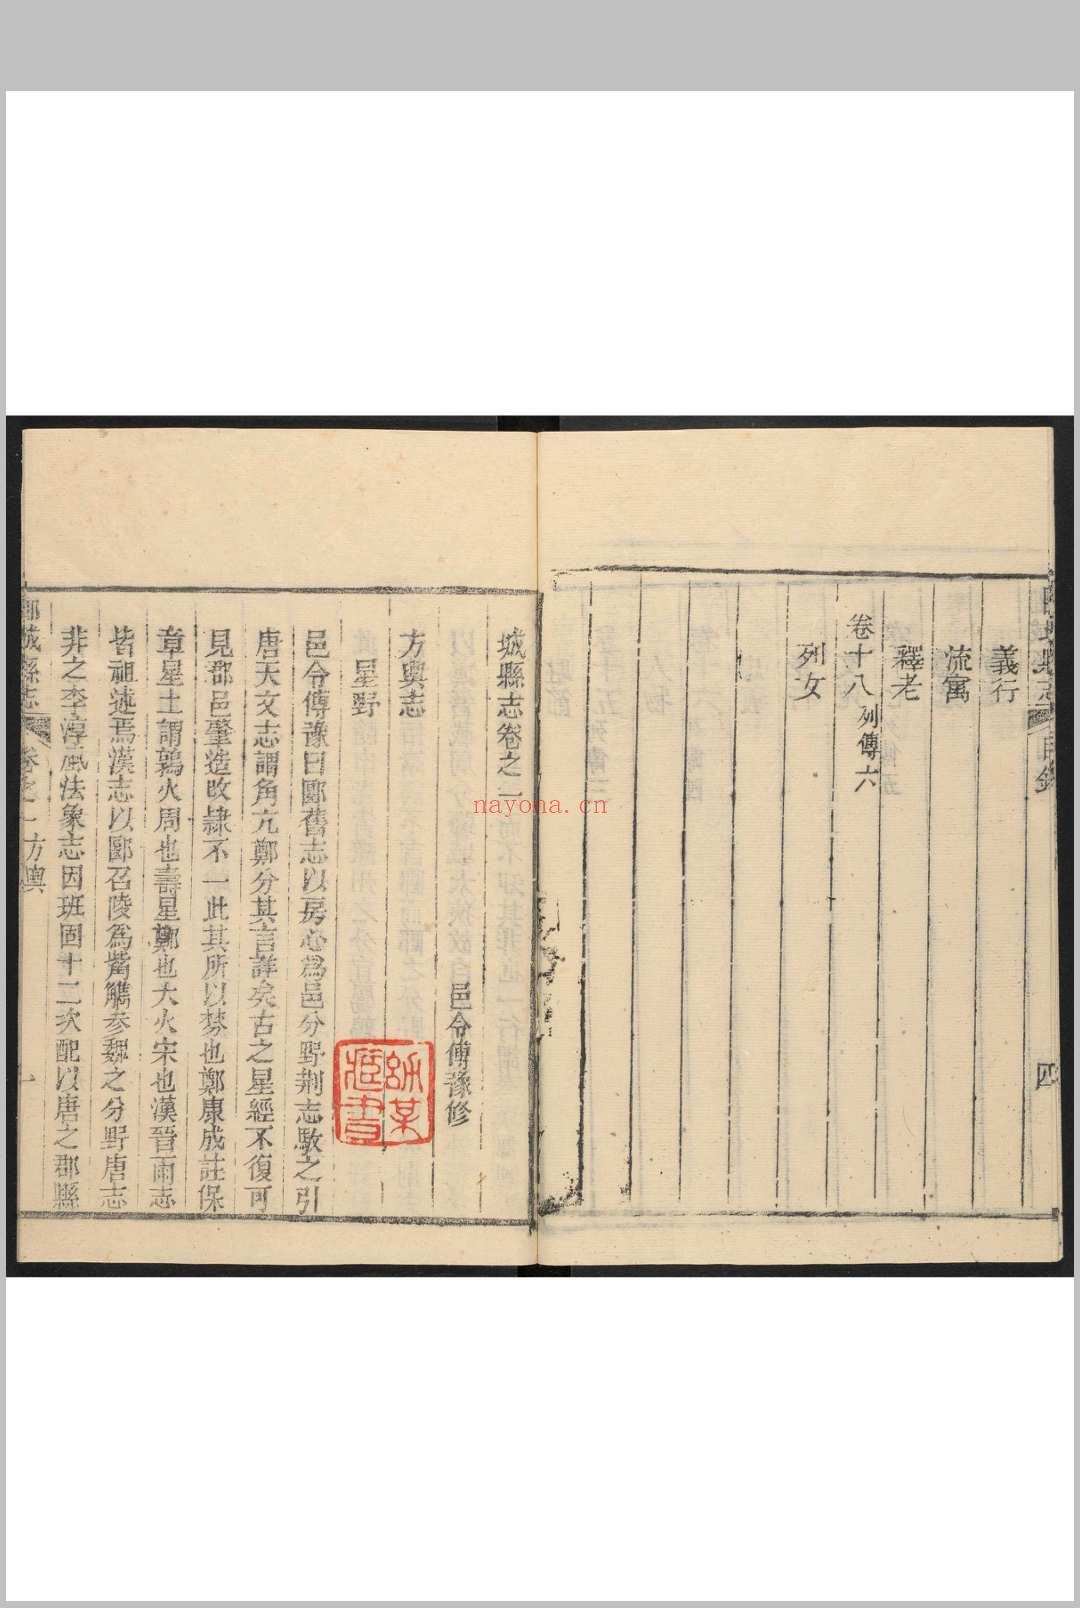 義行
流寓
釋老
卷十八 列傳六
列女
四
城縣志卷之一
邑令傅豫修
方輿志
星野
邑令傅豫曰郾舊志以房心為邑分野荆志駁之引
唐天文志謂角亢鄭分其言詳矣古之星經不復可
見郡邑肇造改隸不一此其所以棼也鄭康成註保
章星土謂鶉火周也壽星鄭也大火宋也漢晉兩志
皆祖述焉漢志以郾召陵為觜觿参魏之分野唐志
非之李淳風法象志因班固十二次配以唐之郡縣
郾城縣志 卷之一 方輿 一
nayona.cn